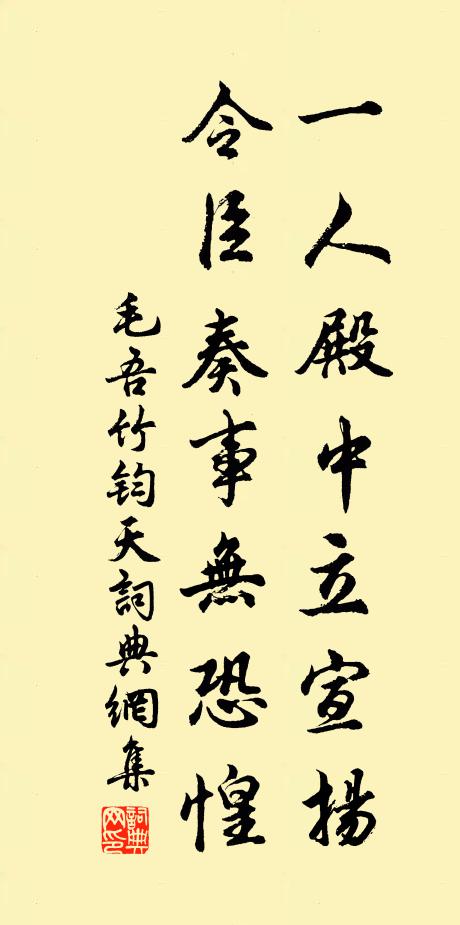 一人殿中立宣揚
令臣奏事無恐惶
毛吾竹鈞天詞典網集
詞典网印